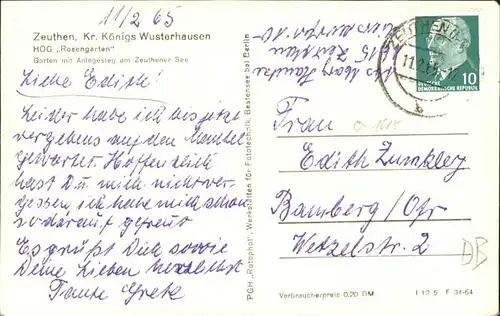 11/2 65
Zeuthen, Kr. Königs Wusterhausen
HOG „Rosengarten"
Garten mit Anlegesteg am Zeuthener See
Liebe Edith!
Leider habe ich bis jetzt
vergebens auf den Mantel
gewartet. Hoffentlich
hast Du mich nicht ver-
gessen, ich habe mich schon
so darauf gefreut
Es grüßt Dich sowie
Deine Lieben herzlichst
Tante Grete
PGH „Rotophot", Werkstätten für Fototechnik, Bestensee bei Berlin
1615 Zeuthen
ZEUTHEN
b
10
DEMOKRATISCHE REPUBLIK
Frau
a 1615
Edith Zunkley
Bamberg/Ofr
Wetzelstr. 2
DB
Verbraucherpreis 0.20 DM
I 12 5 F 34-64